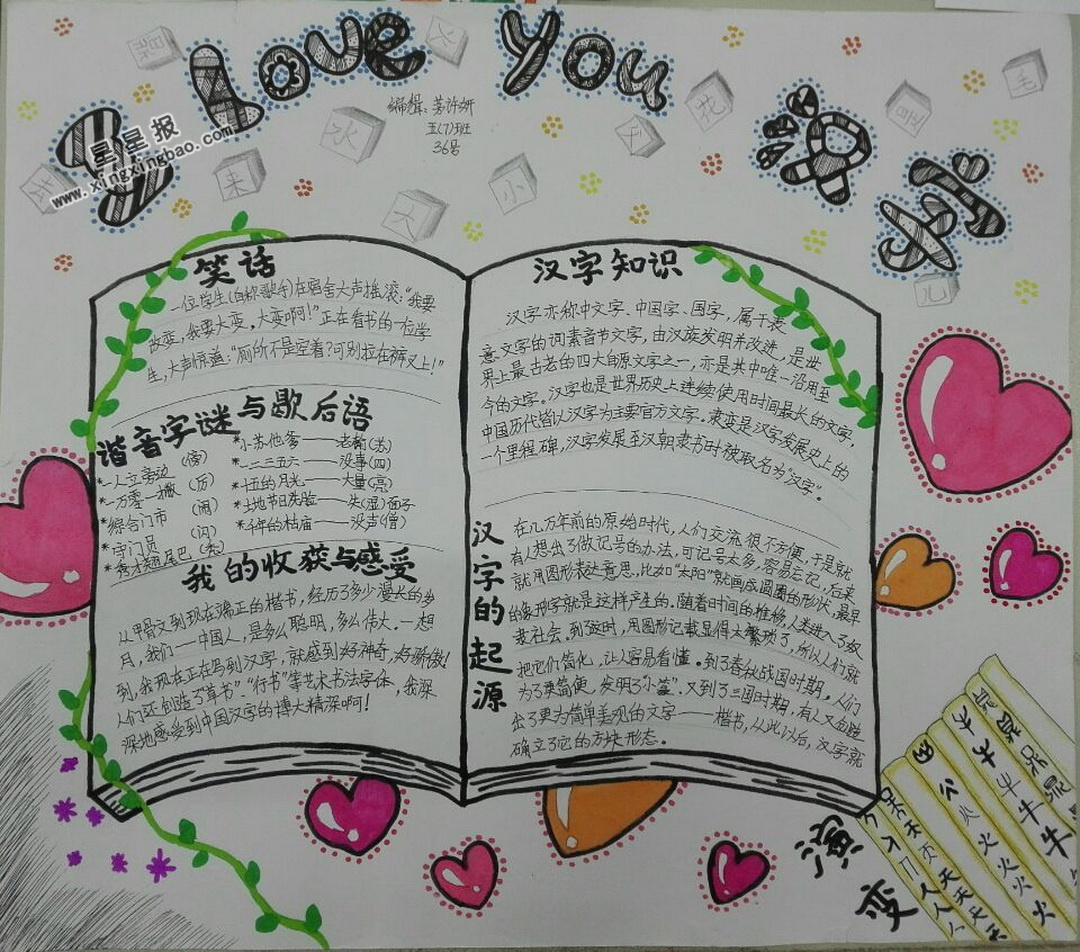 I Love You 汉字
星星报
www.xingxingbao.com
编辑:
五(7)班
36号
水
来
去
人
小
花
毛
儿
笑话
一位学生(自称歌手)在宿舍大声摇滚:"我要
改变,我要大变,大变啊!"正在看书的一位学
生,大声惊道:"厕所不是空着?可别拉在裤叉上!"
谐音字谜与歇后语
*一人立旁边
*一万零一撇 (厉)
*综合门市 (闹)
*守门员 (闪)
*秀才翘尾巴 (秃)
*小苏他爹——老输(苏)
*一二三五六——没事(四)
*十五的月光——大量(亮)
*土地爷洗脸——失(湿)面子
*千年的枯庙——没声(僧)
我的收获与感受
从甲骨文到现在端正的楷书,经历了多少漫长的岁
月,我们——中国人,是多么聪明,多么伟大.一想
到,我现在正在写到汉字,就感到好神奇,好骄傲!
人们还创造了"草书"、"行书"等艺术书法字体,我深
深地感受到中国汉字的博大精深啊!
汉字知识
汉字亦称中文字、中国字、国字,属于表
意文字的词素音节文字,由汉族发明并改进,是世
界上最古老的四大自源文字之一,亦是其中唯一沿用至
今的文字。汉字也是世界历史上连续使用时间最长的文字,
中国历代皆以汉字为主要官方文字。隶变是汉字发展史上的
一个里程碑,汉字发展至汉朝隶书时被取名为"汉字"。
汉字的起源
在几万年前的原始时代,人们交流很不方便,于是就
有人想出了做记号的办法,可记号太多,容易忘记,后来
就用图形表达意思,比如"太阳"就画成圆圈的形状,最早
的象形字就是这样产生的.随着时间的推移,人类进入了奴
隶社会,到了这时,用图形记载显得太繁琐了,所以人们就
把它们简化,让人容易看懂。到了春秋战国时期,人们
为了更简便,发明了"小篆".又到了三国时期,有人又创造
出了更为简单美观的文字——楷书,从此以后,汉字就
确立了它的方块形态。
演变
火
火
火
火
火
牛
牛
牛
天
天
天
人
人